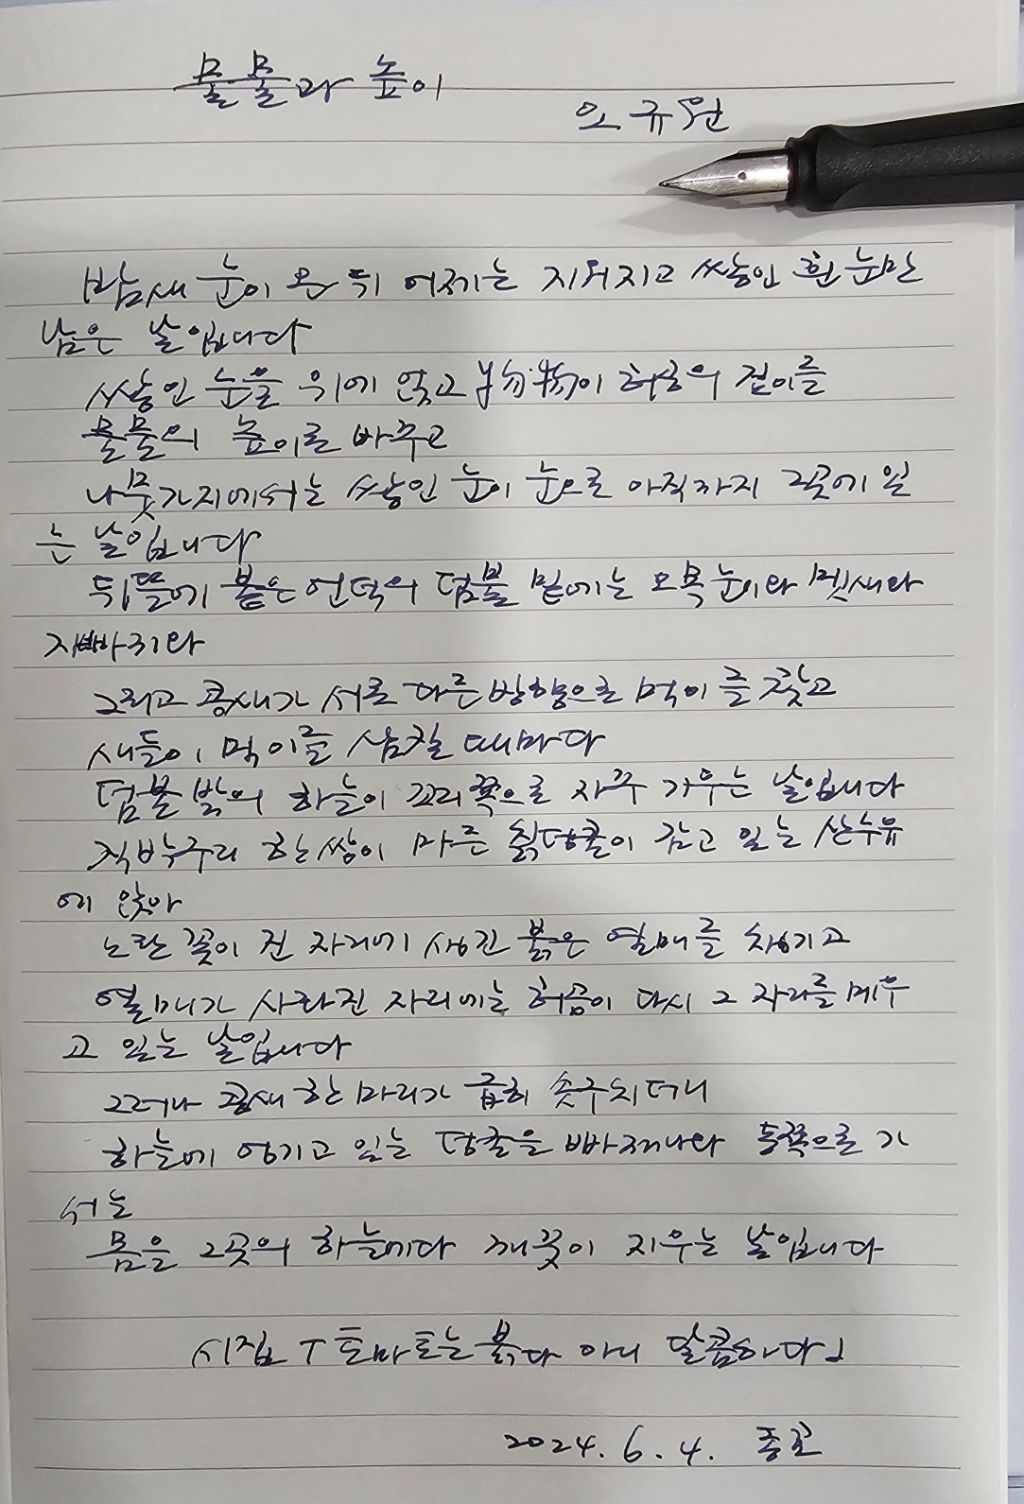 물물과 높이
오규원
밤새 눈이 온 뒤 어제는 지워지고 쌓인 흰 눈만
남은 날입니다
쌓인 눈을 위에 얹고 物物이 허공의 깊이를
물물의 높이로 바꾸고
나뭇가지에서는 쌓인 눈이 눈으로 아직까지 그곳에 있
는 날입니다
뒤뜰에 붙은 언덕의 덤불 밑에는 오목눈이와 멧새와
지빠귀와
그리고 콩새가 서로 다른 방향으로 먹이를 찾고
새들이 먹이를 삼킬 때마다
덤불 밖의 하늘이 꼬리 쪽으로 자꾸 기우는 날입니다
직박구리 한쌍이 마른 칡덩굴이 감고 있는 산수유
에 앉아
노란 꽃이 진 자리에 생긴 붉은 열매를 챙기고
열매가 사라진 자리에는 허공이 다시 그 자리를 메우
고 있는 날입니다
그러나 콩새 한 마리가 급히 솟구치더니
하늘에 엉기고 있는 덩굴을 빠져나와 동쪽으로 가
서는
몸을 그곳의 하늘에다 깨끗이 지우는 날입니다
시집 「토마토는 붉다 아니 달콤하다」
2024. 6. 4.